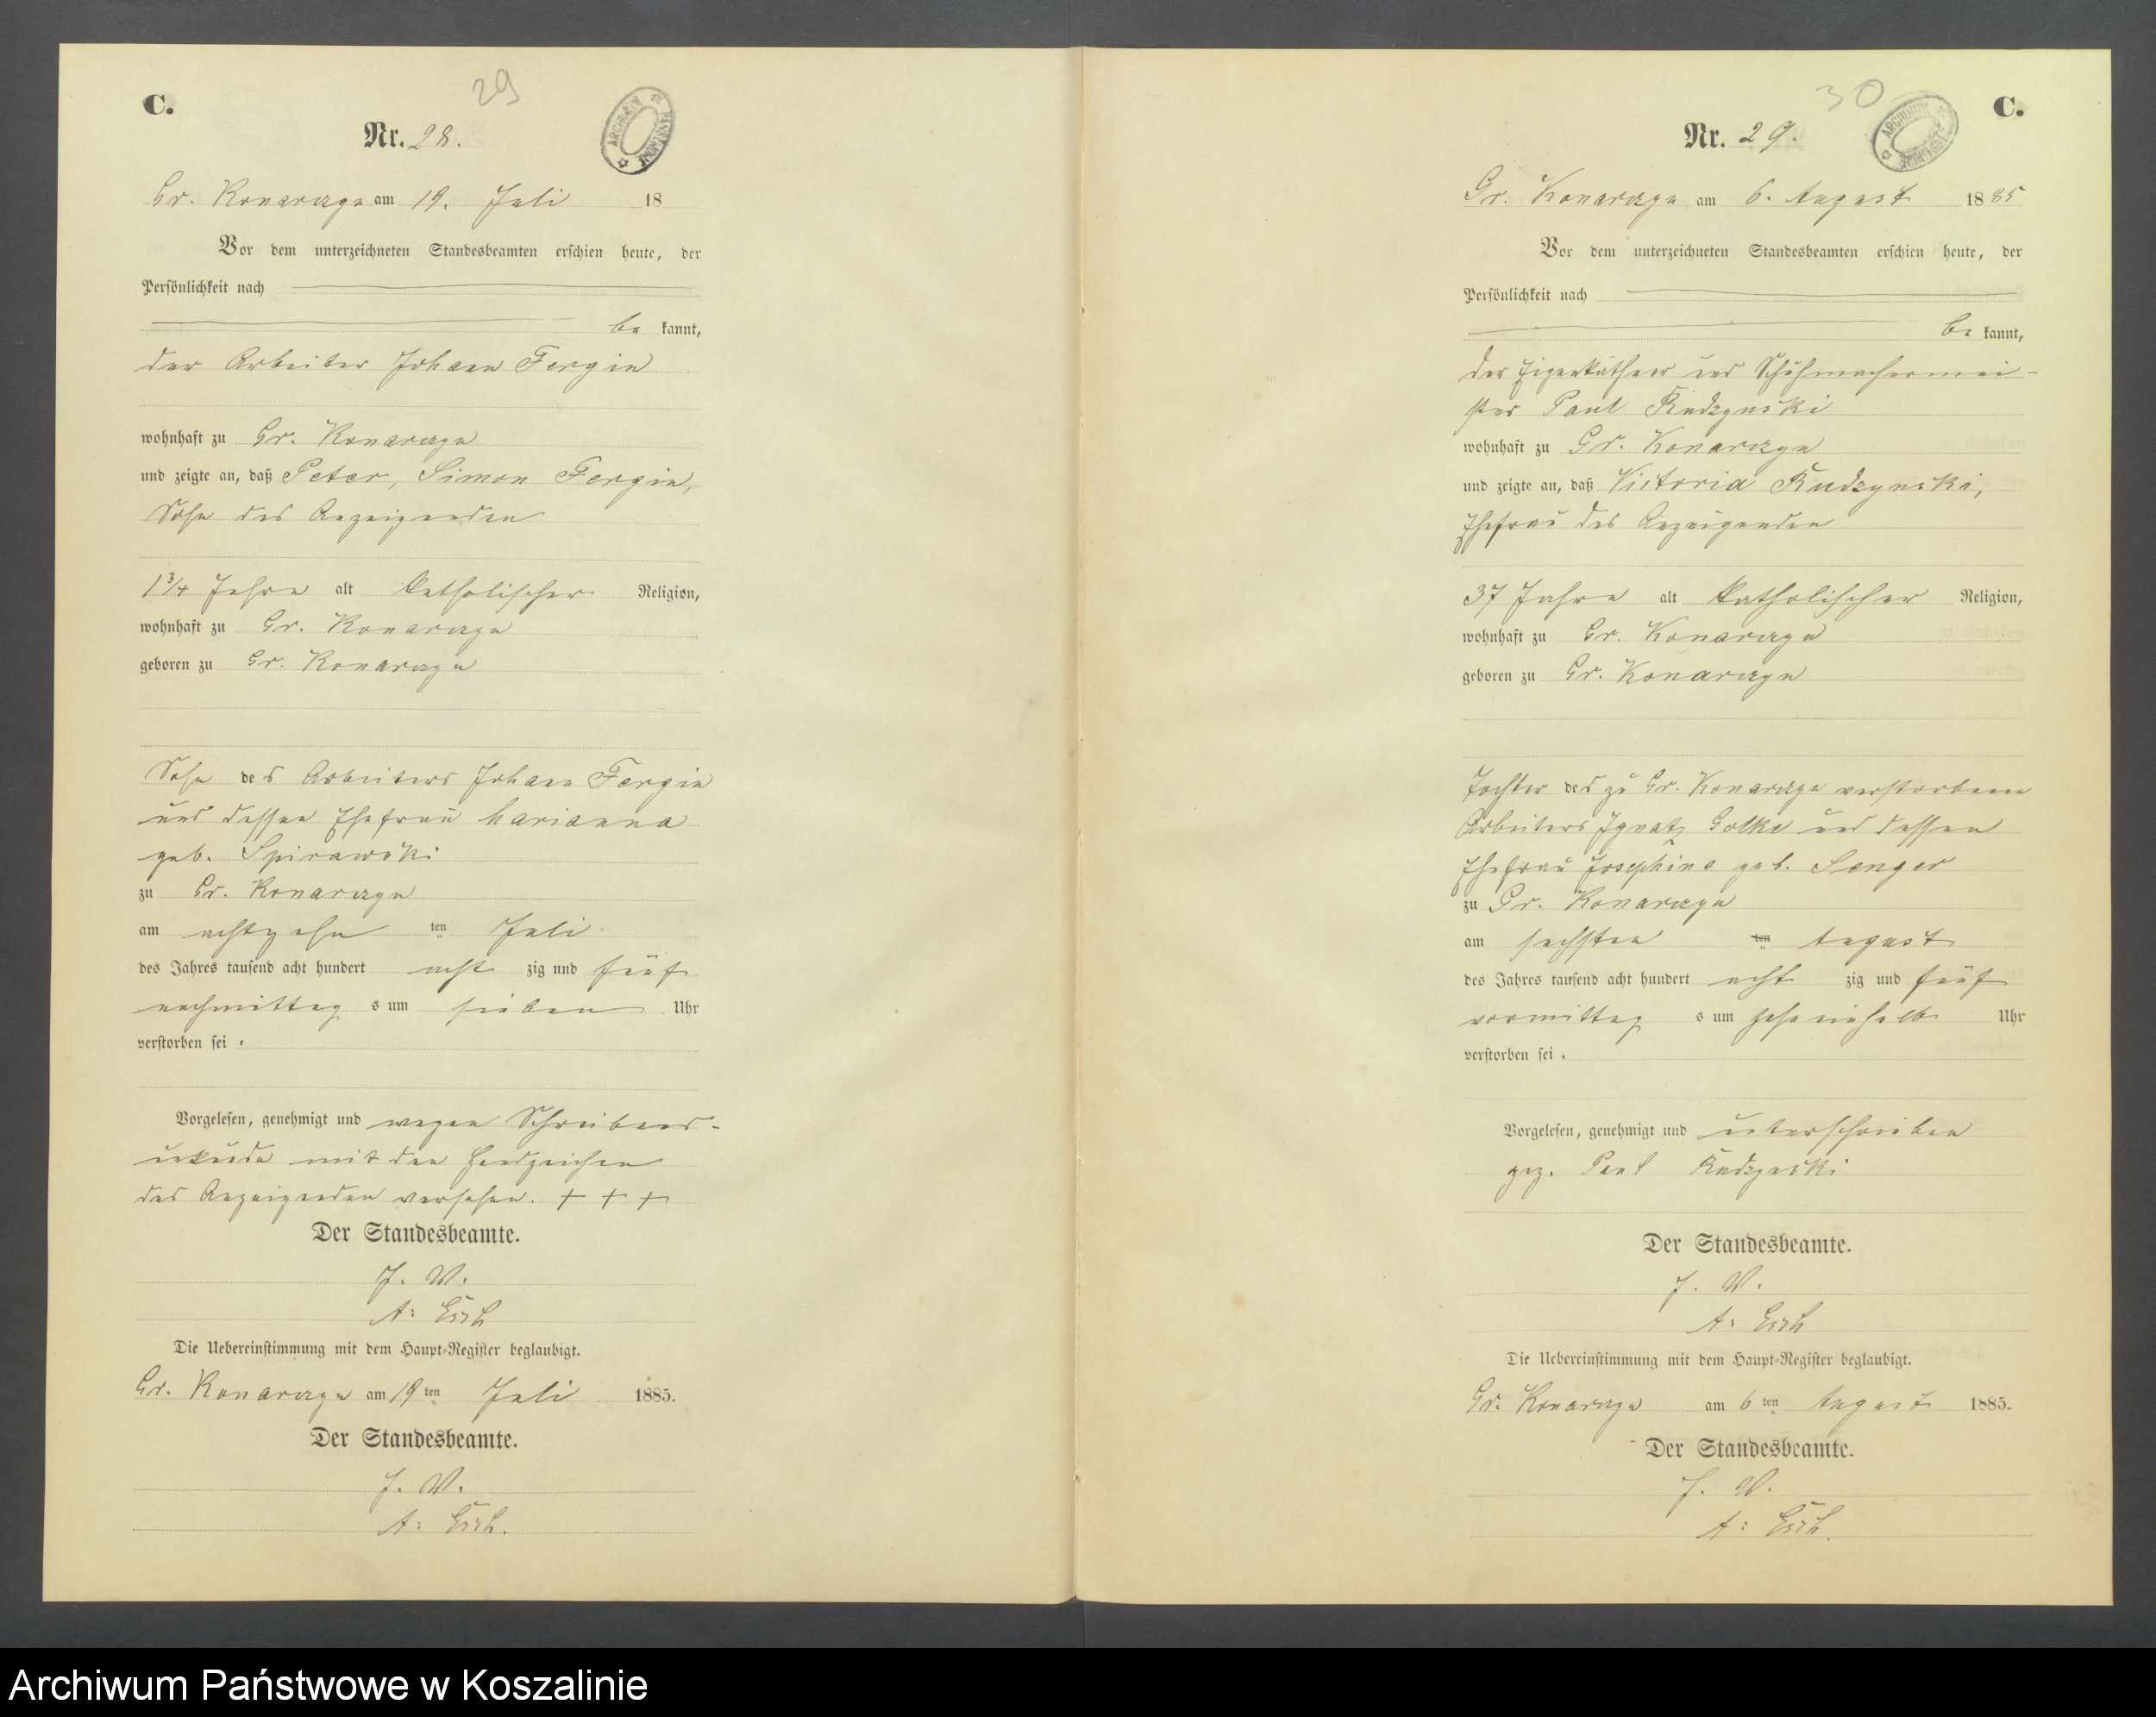 C.
29
Nr. 28.
ARCHIWUM PAŃSTWOWE
Gr. Konarczyn am 19. Juli 18
Vor dem unterzeichneten Standesbeamten erschien heute, der
Persönlichkeit nach
be kannt,
der Arbeiter Johann Fergin
wohnhaft zu Gr. Konarczyn
und zeigte an, daß Peter, Simon Fergin,
Sohn des Anzeigenden
1 3/4 Jahre alt katholischer Religion,
wohnhaft zu Gr. Konarczyn
geboren zu Gr. Konarczyn
Sohn des Arbeiters Johann Fergin
und dessen Ehefrau Marianna
geb. Spirawski
zu Gr. Konarczyn
am achtzehn ten Juli
des Jahres tausend acht hundert acht zig und fünf
nachmittag s um sieben Uhr
verstorben sei.
Vorgelesen, genehmigt und wegen Schreibens-
unkunde mit den Handzeichen
des Anzeigenden versehen. + + +
Der Standesbeamte.
J. V.
A:
Die Uebereinstimmung mit dem Haupt-Register beglaubigt.
Gr. Konarczyn am 19 ten Juli 1885.
Der Standesbeamte.
J. V.
A:
C.
30
Nr. 29.
ARCHIWUM PAŃSTWOWE
Gr. Konarczyn am 6. August 1885
Vor dem unterzeichneten Standesbeamten erschien heute, der
Persönlichkeit nach
be kannt,
der Eigenkäthner und Schuhmachermei-
ster Paul Rudzynski
wohnhaft zu Gr. Konarczyn
und zeigte an, daß Victoria Rudzynski,
Ehefrau des Anzeigenden
37 Jahre alt katholischer Religion,
wohnhaft zu Gr. Konarczyn
geboren zu Gr. Konarczyn
Tochter des zu Gr. Konarczyn verstorbenen
Arbeiters Ignatz Golke und dessen
Ehefrau Josephine geb. Senger
zu Gr. Konarczyn
am sechsten ten August
des Jahres tausend acht hundert acht zig und fünf
vormittag s um zehneinhalb Uhr
verstorben sei.
Vorgelesen, genehmigt und unterschrieben
gez. Paul Rudzynski
Der Standesbeamte.
J. V.
A:
Die Uebereinstimmung mit dem Haupt-Register beglaubigt.
Gr. Konarczyn am 6 ten August 1885.
Der Standesbeamte.
J. V.
A:
Archiwum Państwowe w Koszalinie